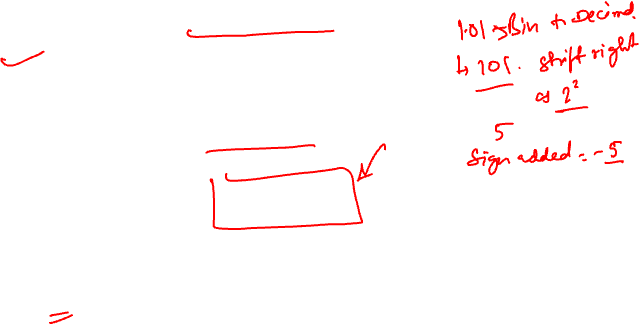 1.01 → Bin to Decimal
↳ 101. shift right
as 2²
5
sign added = -5
=